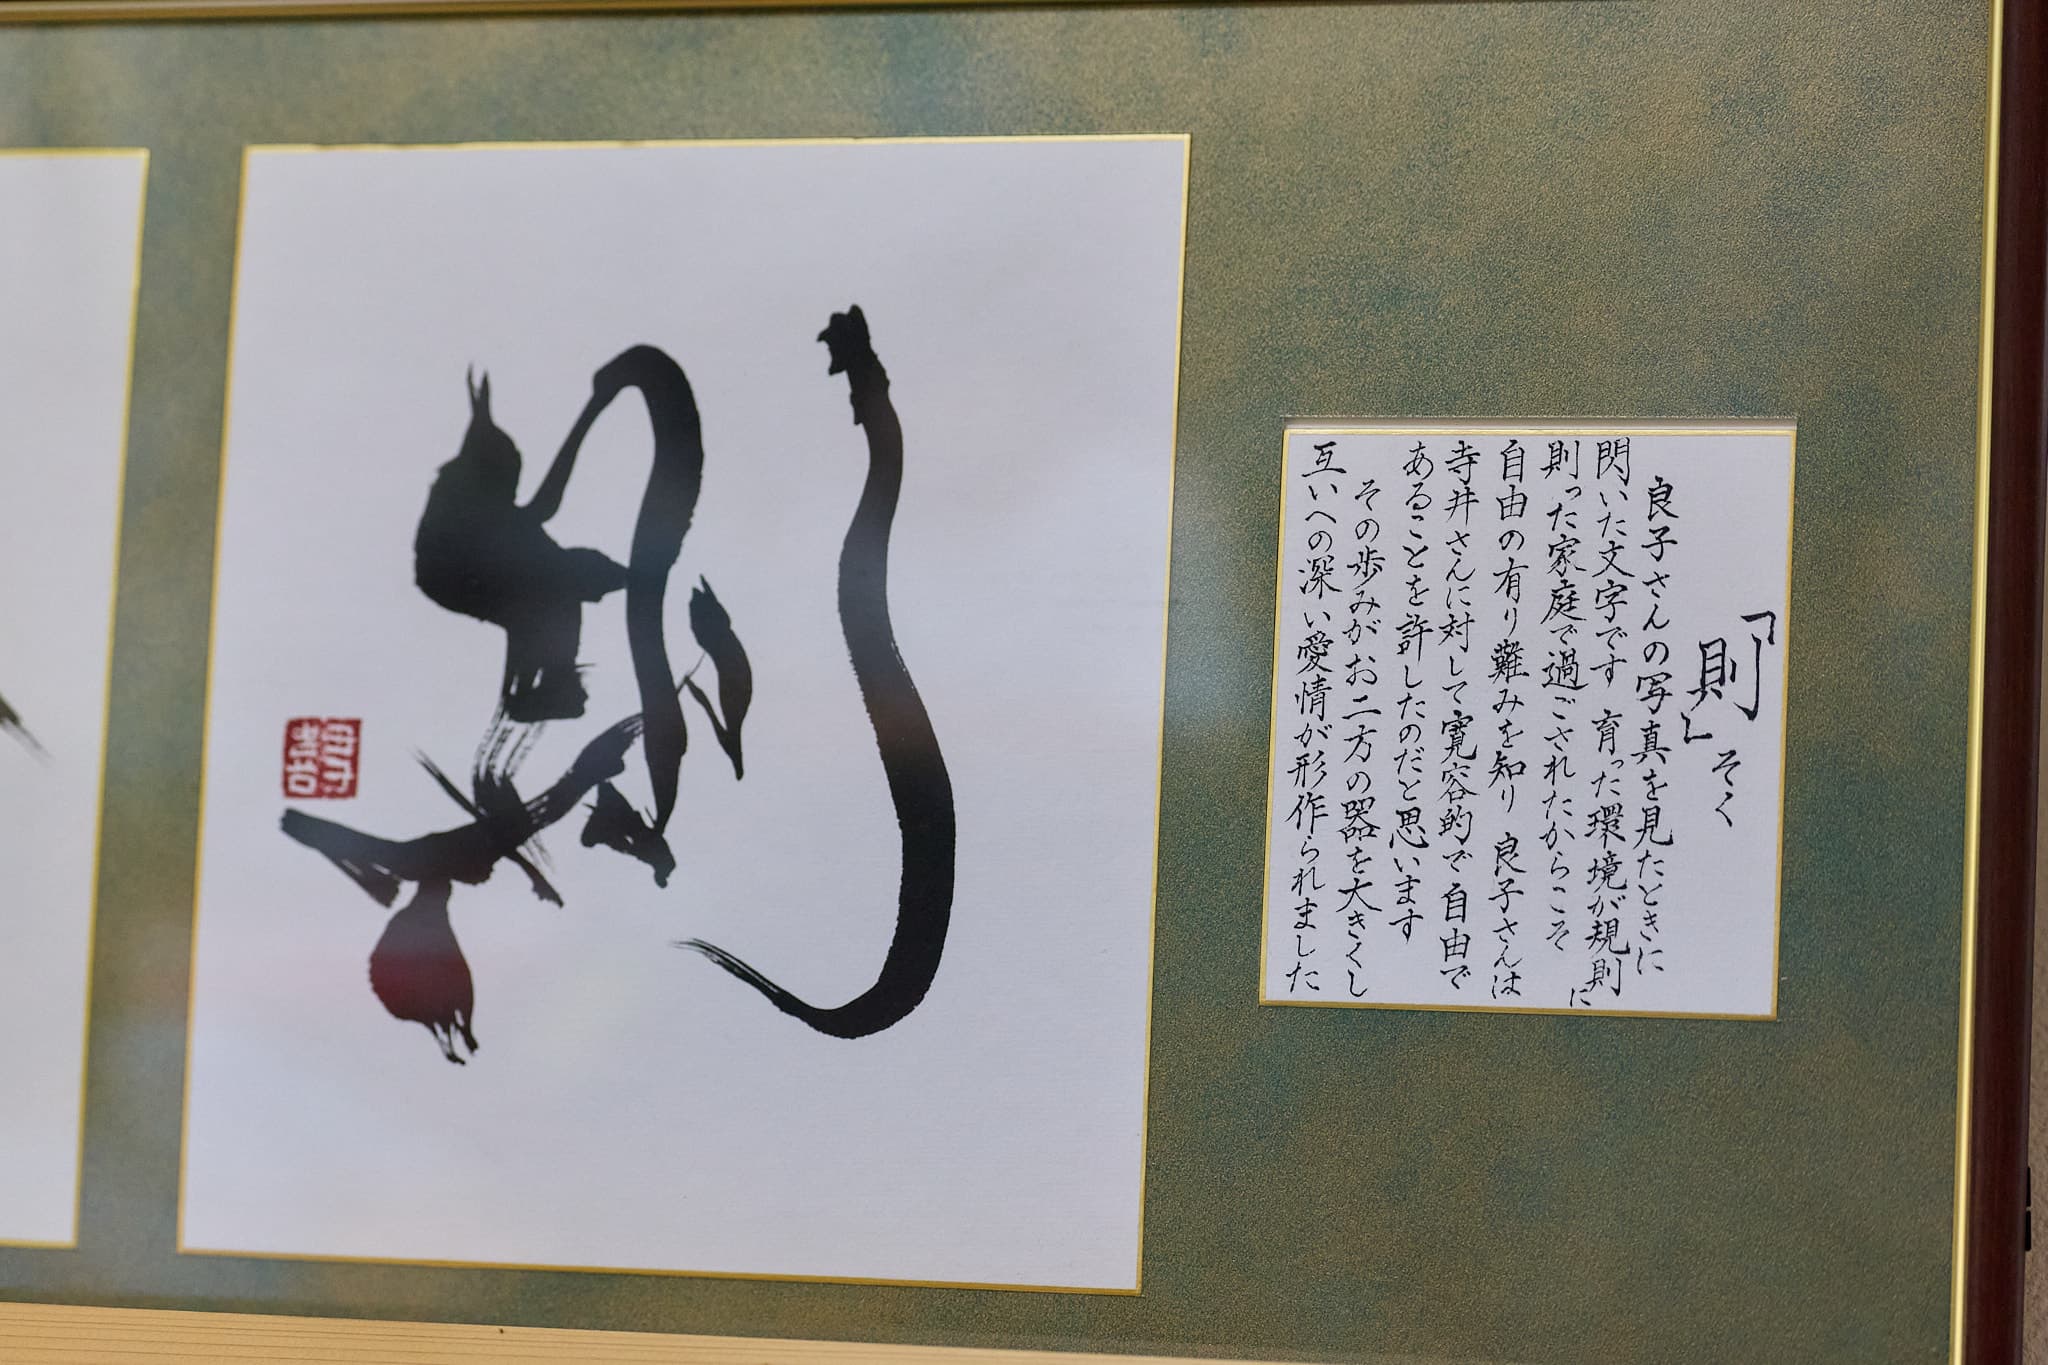 則
「則」そく
良子さんの写真を見たときに
閃いた文字です 育った環境が規則に
則った家庭で過ごされたからこそ
自由の有り難みを知り 良子さんは
寺井さんに対して寛容的で自由で
あることを許したのだと思います
その歩みがお二方の器を大きくし
互いへの深い愛情が形作られました